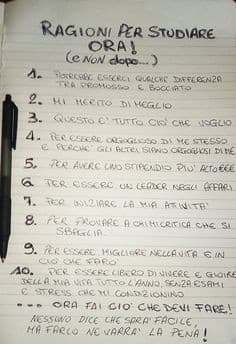 RAGIONI PER STUDIARE
ORA!
(e NON dopo...)
1. POTREBBE ESSERCI QUALCHE DIFFERENZA
TRA PROMOSSO E BOCCIATO
2. MI MERITO DI MEGLIO
3. QUESTO E' TUTTO CIO' CHE VOGLIO
4. PER ESSERE ORGOGLIOSO DI ME STESSO
E PERCHE' GLI ALTRI SIANO ORGOGLIOSI DI ME
5. PER AVERE UNO STIPENDIO PIU' ALTO €€€
6. PER ESSERE UN LEADER NEGLI AFFARI
7. PER INIZIARE LA MIA ATTIVITA'
8. PER PROVARE A CHI MI CRITICA CHE SI
SBAGLIA
9. PER ESSERE MIGLIORE NELLA VITA E IN
CIO' CHE FARO'
10. PER ESSERE LIBERO DI VIVERE E GIOIRE
DELLA MIA VITA TUTTO L'ANNO, SENZA ESAMI
E STRESS CHE MI CONDIZIONINO
... ORA FAI CIO' CHE DEVI FARE!
NESSUNO DICE CHE SARA' FACILE,
MA FARLO NE VARRA' LA PENA!